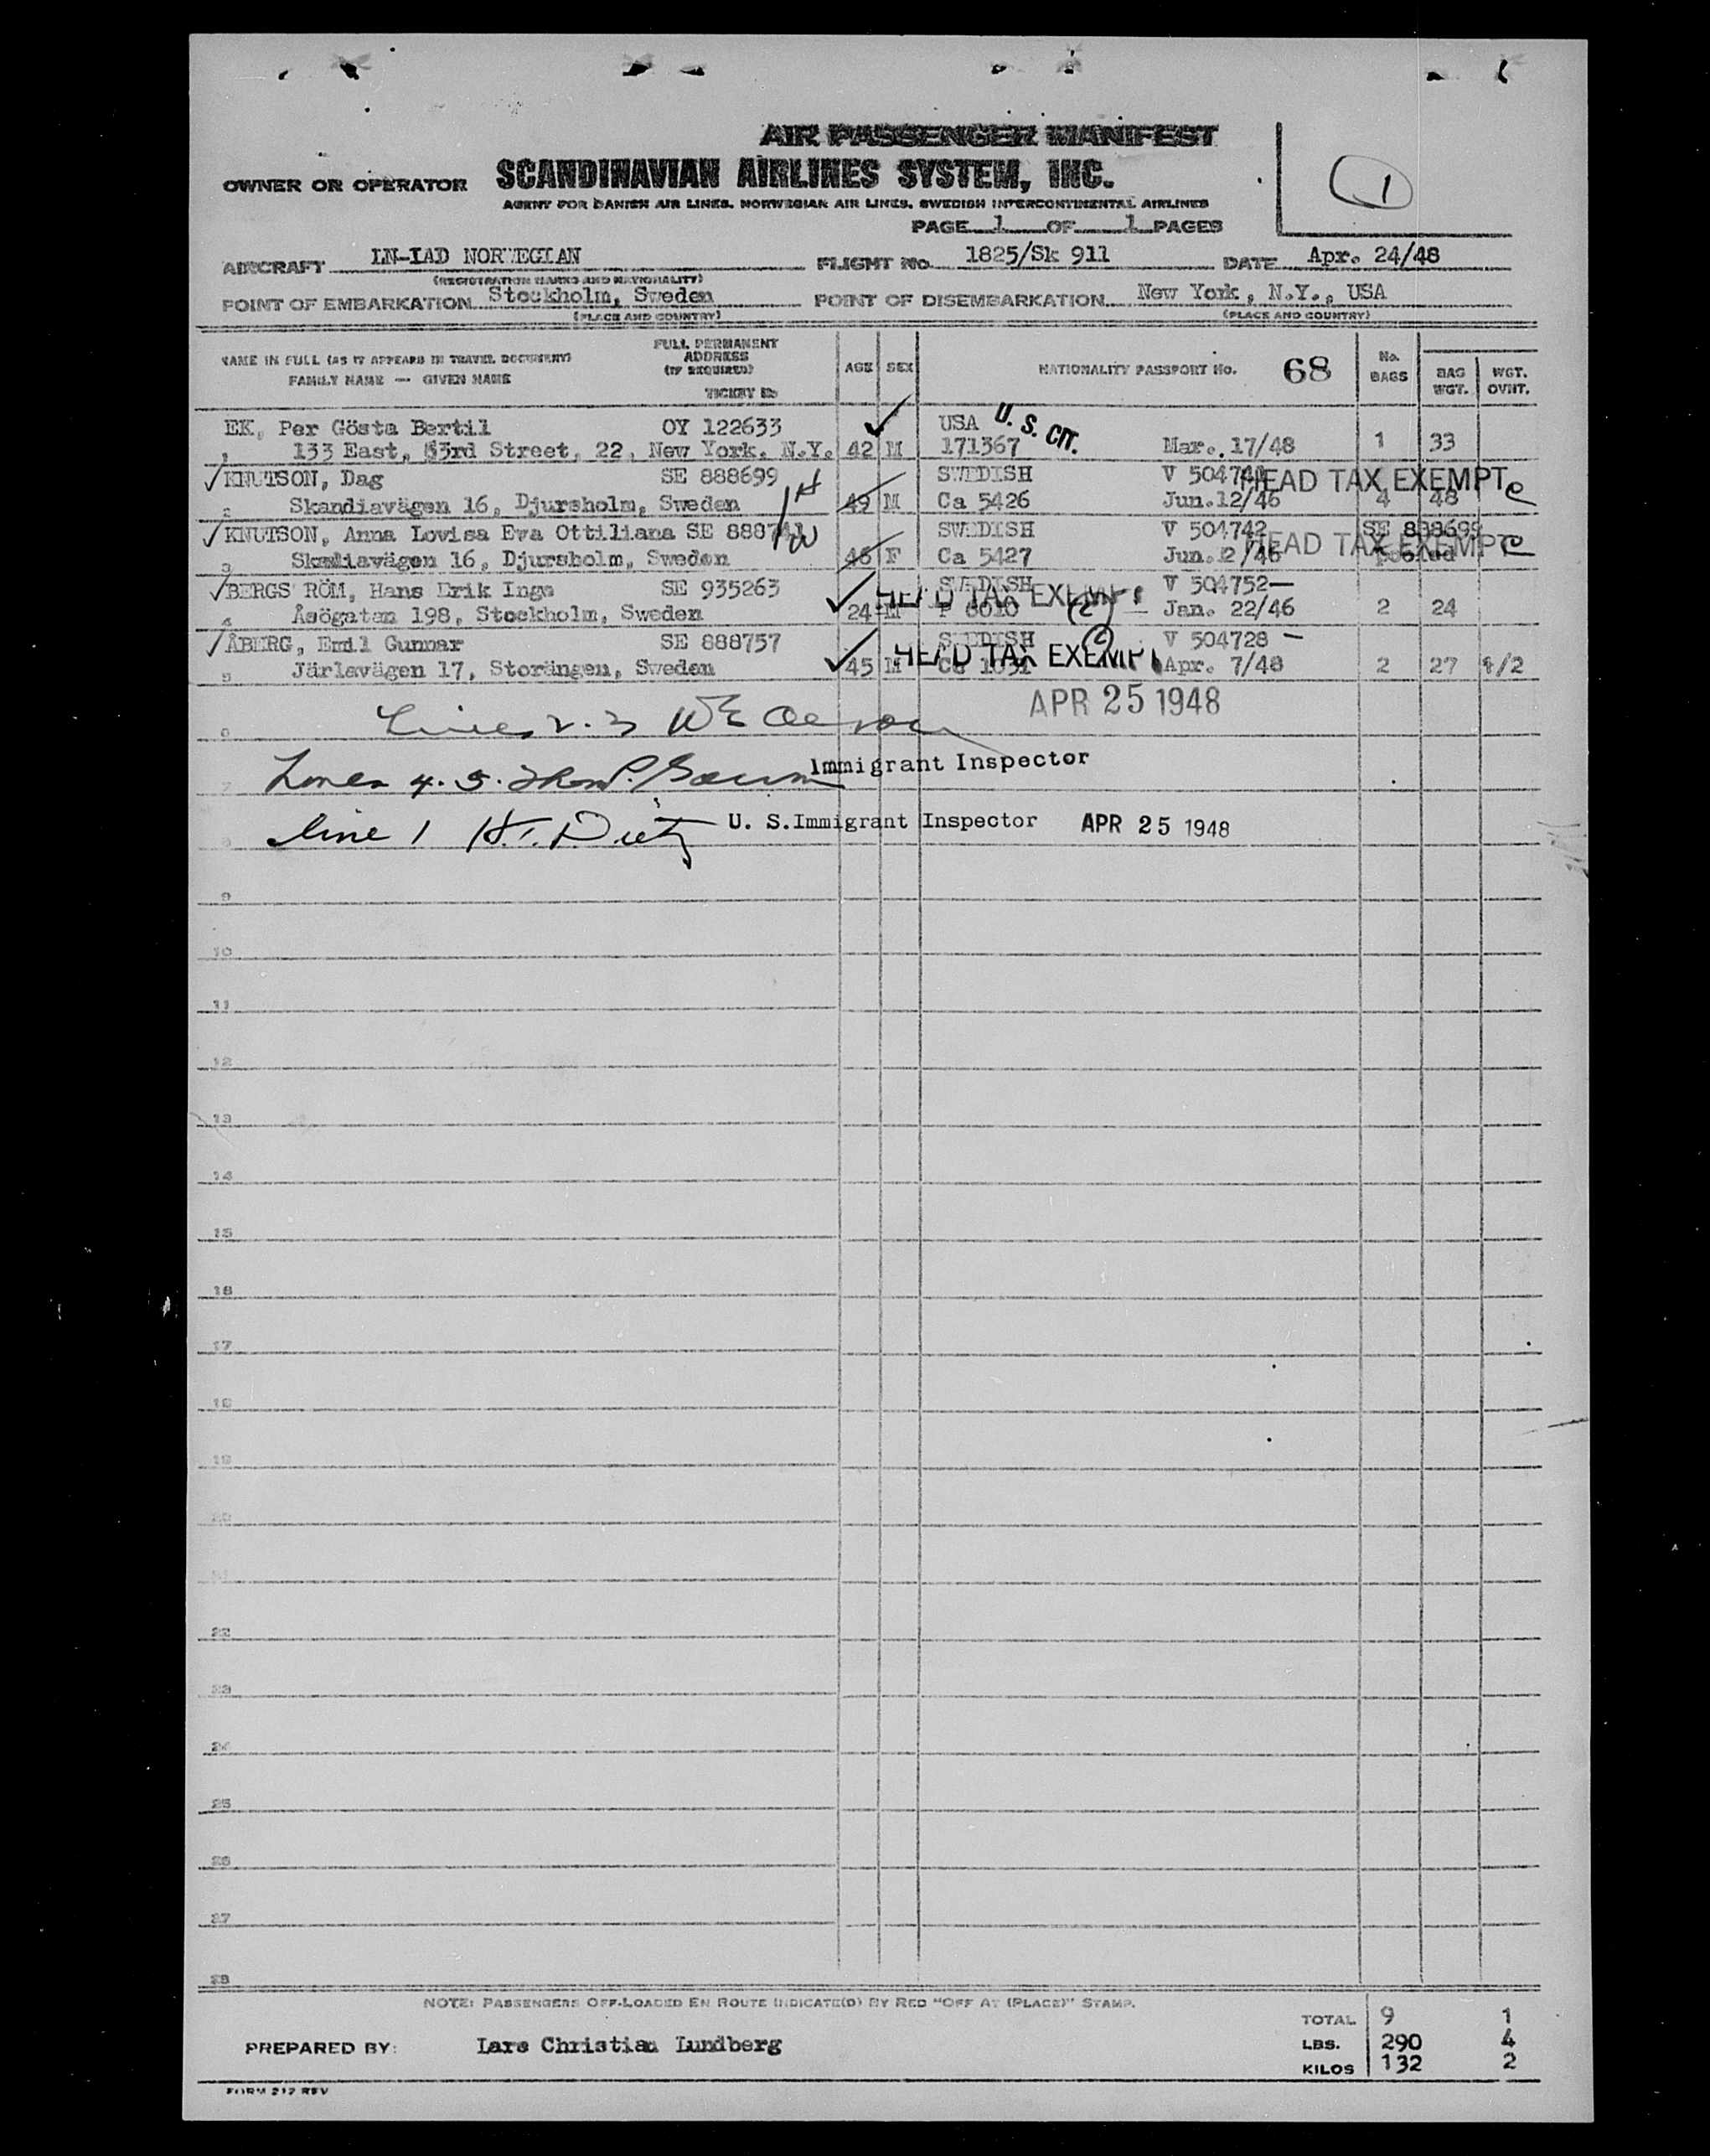 AIR PASSENGER MANIFEST
OWNER OR OPERATOR SCANDINAVIAN AIRLINES SYSTEM, INC.
AGENT FOR DANISH AIR LINES. NORWEGIAN AIR LINES. SWEDISH INTERCONTINENTAL AIRLINES
1
PAGE 1 OF 1 PAGES
AIRCRAFT LN-IAD NORWEGIAN FLIGHT No. 1825/Sk 911 DATE Apr. 24/48
(REGISTRATION MARKS AND NATIONALITY)
POINT OF EMBARKATION Stockholm, Sweden POINT OF DISEMBARKATION New York, N.Y., USA
(PLACE AND COUNTRY) (PLACE AND COUNTRY)
NAME IN FULL (AS IT APPEARS IN TRAVEL DOCUMENT)
FAMILY NAME — GIVEN NAME
FULL PERMANENT ADDRESS (IF REQUIRED)
TICKET No
AGE SEX NATIONALITY PASSPORT No. 68 No. BAGS BAG WGT. WGT. OVHT.
EK, Per Gösta Bertil OY 122633 USA U. S. CIT.
1 133 East, 53rd Street, 22, New York. N.Y. 42 M 171367 Mar. 17/48 1 33
KNUTSON, Dag SE 888699 SWEDISH V 504741 HEAD TAX EXEMPT
2 Skandiavägen 16, Djursholm, Sweden 49 M Ca 5426 Jun.12/46 4 48
KNUTSON, Anna Lovisa Eva Ottiliana SE 888741 SWEDISH V 504742 SE 888699
3 Skandiavägen 16, Djursholm, Sweden 46 F Ca 5427 Jun.12/46 HEAD TAX EXEMPT pooled
BERGS RÖM, Hans Erik Inge SE 935263 SWEDISH V 504752—
4 Åsögatan 198, Stockholm, Sweden 24 M HEAD TAX EXEMPT Jan. 22/46 2 24
ÅBERG, Emil Gunnar SE 888757 SWEDISH V 504728 —
5 Järlavägen 17, Storängen, Sweden 45 M HEAD TAX EXEMPT Apr. 7/48 2 27 1/2
6 Lines 2.3 APR 25 1948
7 Lines 4.5. Immigrant Inspector
8 line 1 U. S. Immigrant Inspector APR 25 1948
9
10
11
12
13
14
15
16
17
18
19
20
21
22
23
24
25
26
27
28
NOTE: PASSENGERS OFF-LOADED EN ROUTE INDICATE(D) BY RED "OFF AT (PLACE)" STAMP.
TOTAL 9 1
PREPARED BY: Lars Christian Lundberg LBS. 290 4
KILOS 132 2
FORM 217 REV